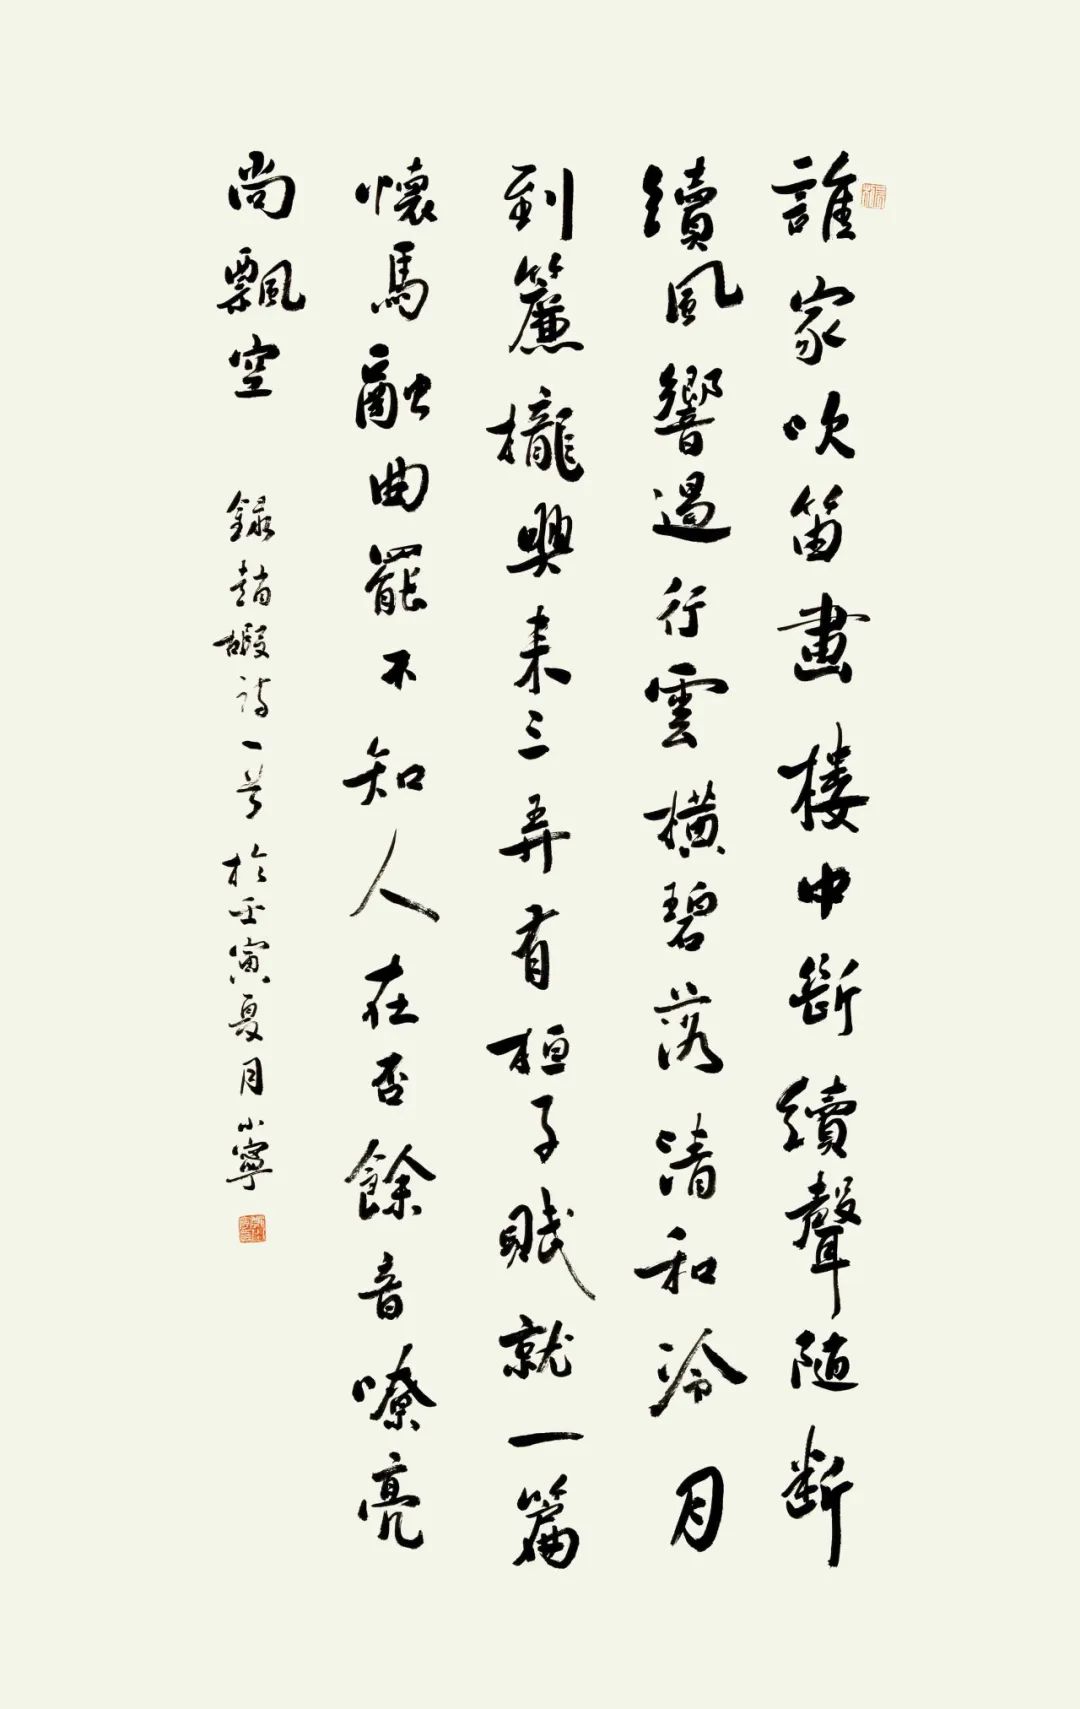 誰家吹笛畫楼中斷續聲随断
續風響遏行雲横碧落清和冷月
到簾櫳興来三弄有桓子賦就一篇
懷馬融曲罷不知人在否餘音嘹亮
尚飄空
録趙嘏诗一首於壬寅夏月小寧